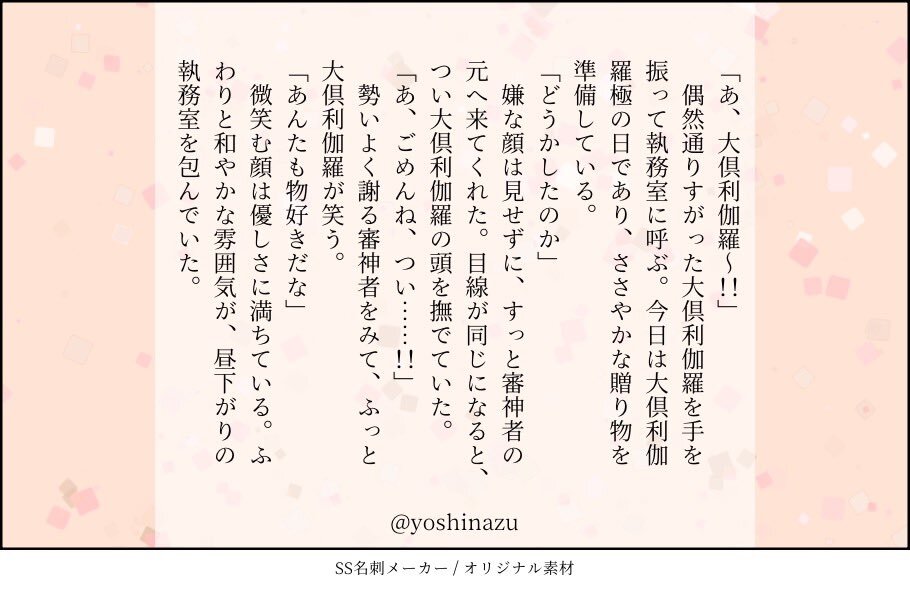 「あ、大倶利伽羅〜!!」
　偶然通りすがった大倶利伽羅を手を
振って執務室に呼ぶ。今日は大倶利伽
羅極の日であり、ささやかな贈り物を
準備している。
「どうかしたのか」
　嫌な顔は見せずに、すっと審神者の
元へ来てくれた。目線が同じになると、
つい大倶利伽羅の頭を撫でていた。
「あ、ごめんね、つい……!!」
　勢いよく謝る審神者をみて、ふっと
大倶利伽羅が笑う。
「あんたも物好きだな」
　微笑む顔は優しさに満ちている。ふ
わりと和やかな雰囲気が、昼下がりの
執務室を包んでいた。
@yoshinazu
SS名刺メーカー / オリジナル素材